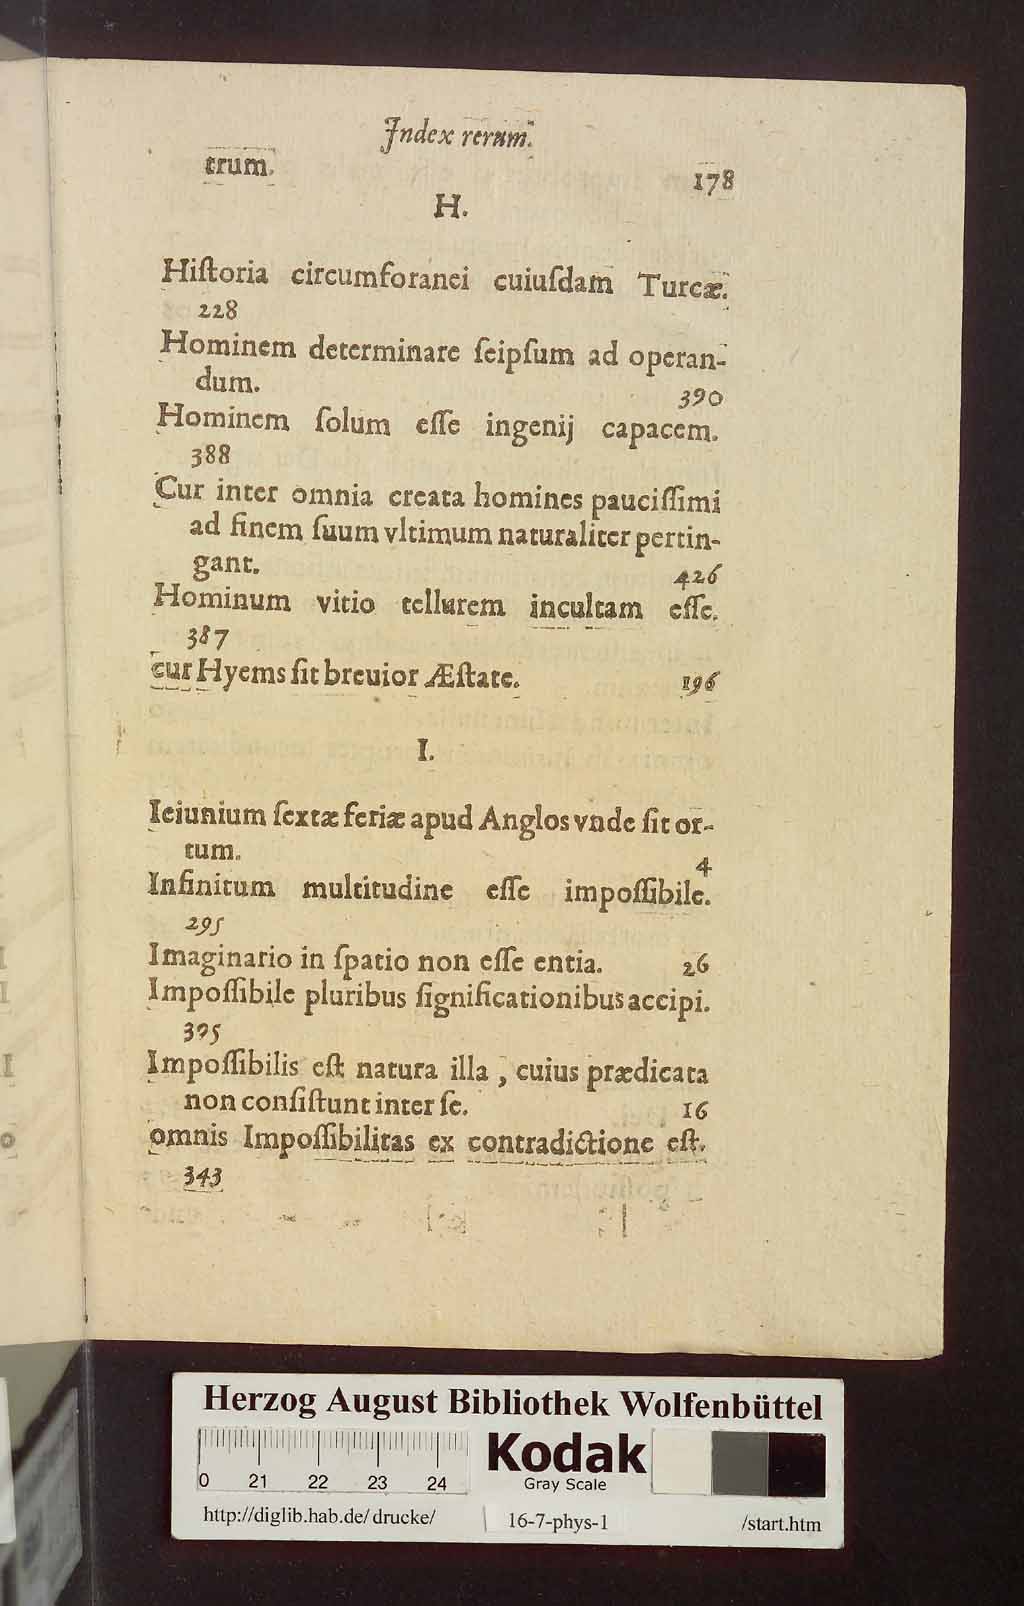 Index rerum.
trum. 178
H.
Hiſtoria circumforanei cuiuſdam Turcæ.
228
Hominem determinare ſeipſum ad operan-
dum. 390
Hominem ſolum eſſe ingenij capacem.
388
Cur inter omnia creata homines pauciſſimi
ad finem ſuum vltimum naturaliter pertin-
gant. 426
Hominum vitio tellurem incultam eſſe.
387
cur Hyems ſit breuior Æſtate. 196
I.
Ieiunium ſextæ feriæ apud Anglos vnde ſit or-
tum. 4
Infinitum multitudine eſſe impoſſibile.
295
Imaginario in ſpatio non eſſe entia. 26
Impoſſibile pluribus ſignificationibus accipi.
395
Impoſſibilis eſt natura illa, cuius prædicata
non conſiſtunt inter ſe. 16
omnis Impoſſibilitas ex contradictione eſt.
343
Herzog August Bibliothek Wolfenbüttel
0 21 22 23 24
Kodak
Gray Scale
http://diglib.hab.de/drucke/ 16-7-phys-1 /start.htm